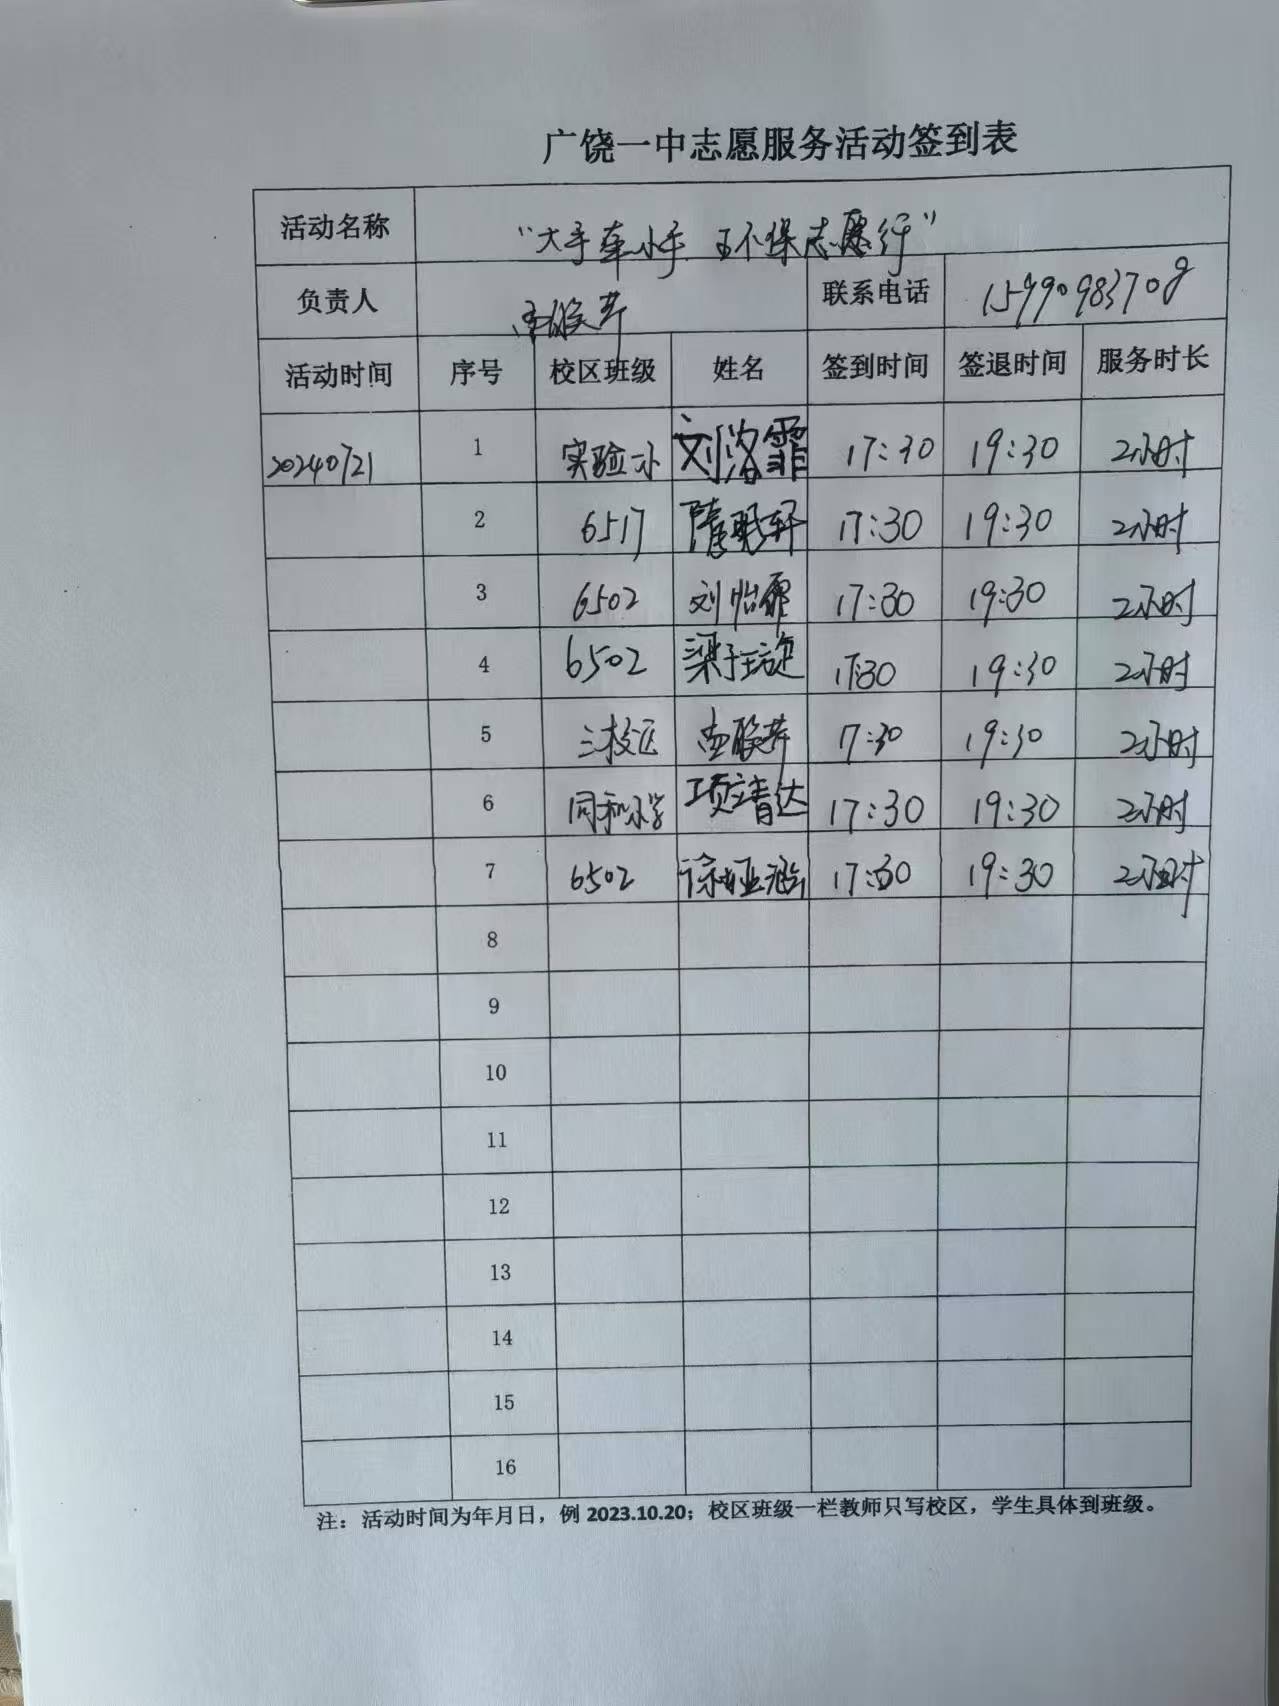 广饶一中志愿服务活动签到表
活动名称 “大手牵小手 环保志愿行”
负责人 联系电话 15990983708
活动时间 序号 校区班级 姓名 签到时间 签退时间 服务时长
20240721 1 实验小 刘洛霏 17:30 19:30 2小时
2 6517 隋 轩 17:30 19:30 2小时
3 6502 刘怡霏 17:30 19:30 2小时
4 6502 梁子琁 17:30 19:30 2小时
5 三校区 17:30 19:30 2小时
6 同和小学 项靖达 17:30 19:30 2小时
7 6502 徐 涵 17:30 19:30 2小时
8
9
10
11
12
13
14
15
16
注：活动时间为年月日，例 2023.10.20；校区班级一栏教师只写校区，学生具体到班级。